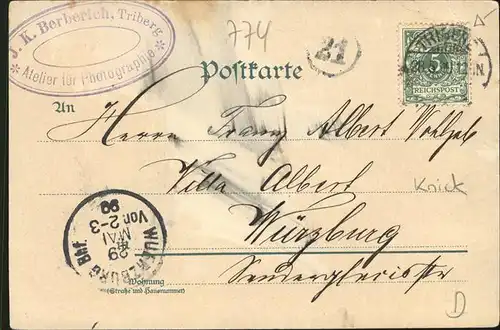 J. K. Berberich, Triberg
* Atelier für Photographie *
774
21
TRIBERG
5
REICHSPOST
Postkarte
An
Herrn Franz Albert
Villa Albert
Knick
Würzburg
WUERZBURG Bhf.
29
MAI
Vor. 2-3
99
Wohnung
(Straße und Hausnummer)
D